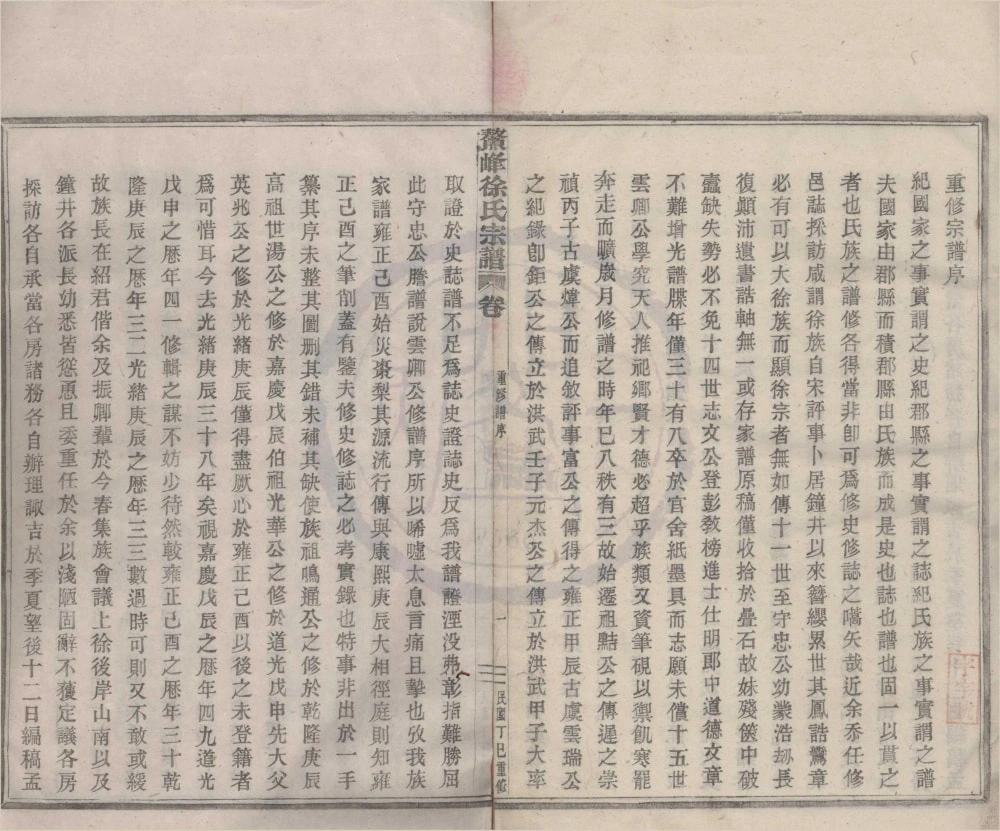 重修宗譜序
紀國家之事實謂之史紀郡縣之事實謂之誌紀氏族之事實謂之譜
夫國家由郡縣而積郡縣由氏族而成是史也誌也譜也固一以貫之
者也氏族之譜修各得當非卽可爲修史修誌之嚆矢哉近余忝任修
邑誌採訪咸謂徐族自宋評事卜居鐘井以來簪纓累世其鳳誥鸞章
必有可以大徐族而顯徐宗者無如傳十一世至守忠公幼纍浩刼長
復顚沛遺書誥軸無一或存家譜原稿僅收拾於疊石故妹殘篋中破
蠹缺失勢必不免十四世志文公登彭敎榜進士仕明郎中道德文章
不難增光譜牒年僅三十有八卒於官舍紙墨具而志願未償十五世
雲卿公學究天人推祀鄕賢才德必超乎族類又資筆硯以禦飢寒罷
奔走而曠歲月修譜之時年已八秩有三故始遷祖黠公之傳遲之崇
禎丙子古虞煒公而追敘評事富公之傳得之雍正甲辰古虞雲瑞公
之紀錄卽鉅公之傳立於洪武壬子元杰公之傳立於洪武甲子大率
鰲峰徐氏宗譜 卷 重修譜序 一 民國丁巳重修
取證於史誌譜不足爲誌史證誌史反爲我譜證湮没弗彰指難勝屈
此守忠公譫譜說雲卿公修譜序所以唏噓太息言痛且摯也攷我族
家譜雍正己酉始災棗梨其源流行傳與康熙庚辰大相徑庭則知雍
正己酉之筆削蓋有鑒夫修史修誌之必考實錄也特事非出於一手
纂其序未整其圖删其錯未補其缺使族祖鳴通公之修於乾隆庚辰
高祖世湯公之修於嘉慶戊辰伯祖光華公之修於道光戊申先大父
英兆公之修於光緖庚辰僅得盡厥心於雍正己酉以後之未登籍者
爲可惜耳今去光緖庚辰三十八年矣視嘉慶戊辰之歷年四九道光
戊申之歷年四一修輯之謀不妨少待然較雍正己酉之歷年三十乾
隆庚辰之歷年三二光緖庚辰之歷年三三數過時可則又不敢或緩
故族長在紹君偕余及振卿輩於今春集族會議上徐後岸山南以及
鐘井各派長幼悉皆慫恿且委重任於余以淺陋固辭不獲定議各房
採訪各自承當各房諸務各自辦理諏吉於季夏望後十二日編稿孟